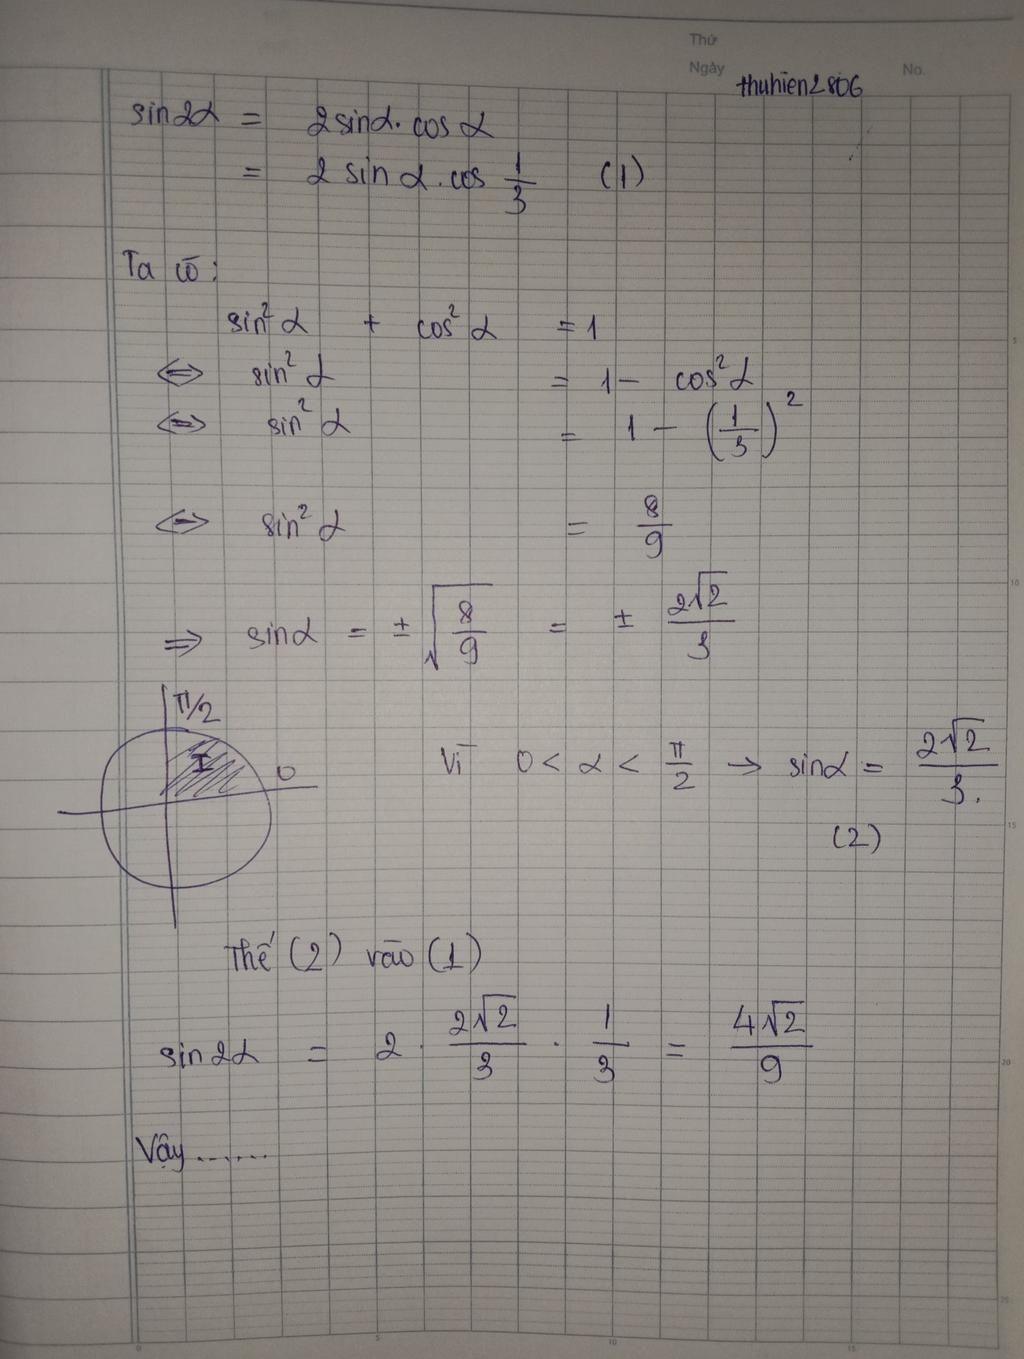 Thứ
Ngày
No.
thuhien2806
sin2α = 2sinα. cos α
= 2 sin α. cos 1/3 (1)
Ta có:
sin² α + cos² α = 1
⇔ sin² α = 1 - cos² α
⇔ sin² α = 1 - (1/3)²
⇔ sin² α = 8/9
⇒ sinα = ± √(8/9) = ± 2√2/3
π/2
I
0
Vì 0 < α < π/2 → sinα = 2√2/3.
(2)
Thế (2) vào (1)
sin2α = 2 . 2√2/3 . 1/3 = 4√2/9
Vậy.......
5
10
15
20
25
0
5
10
15